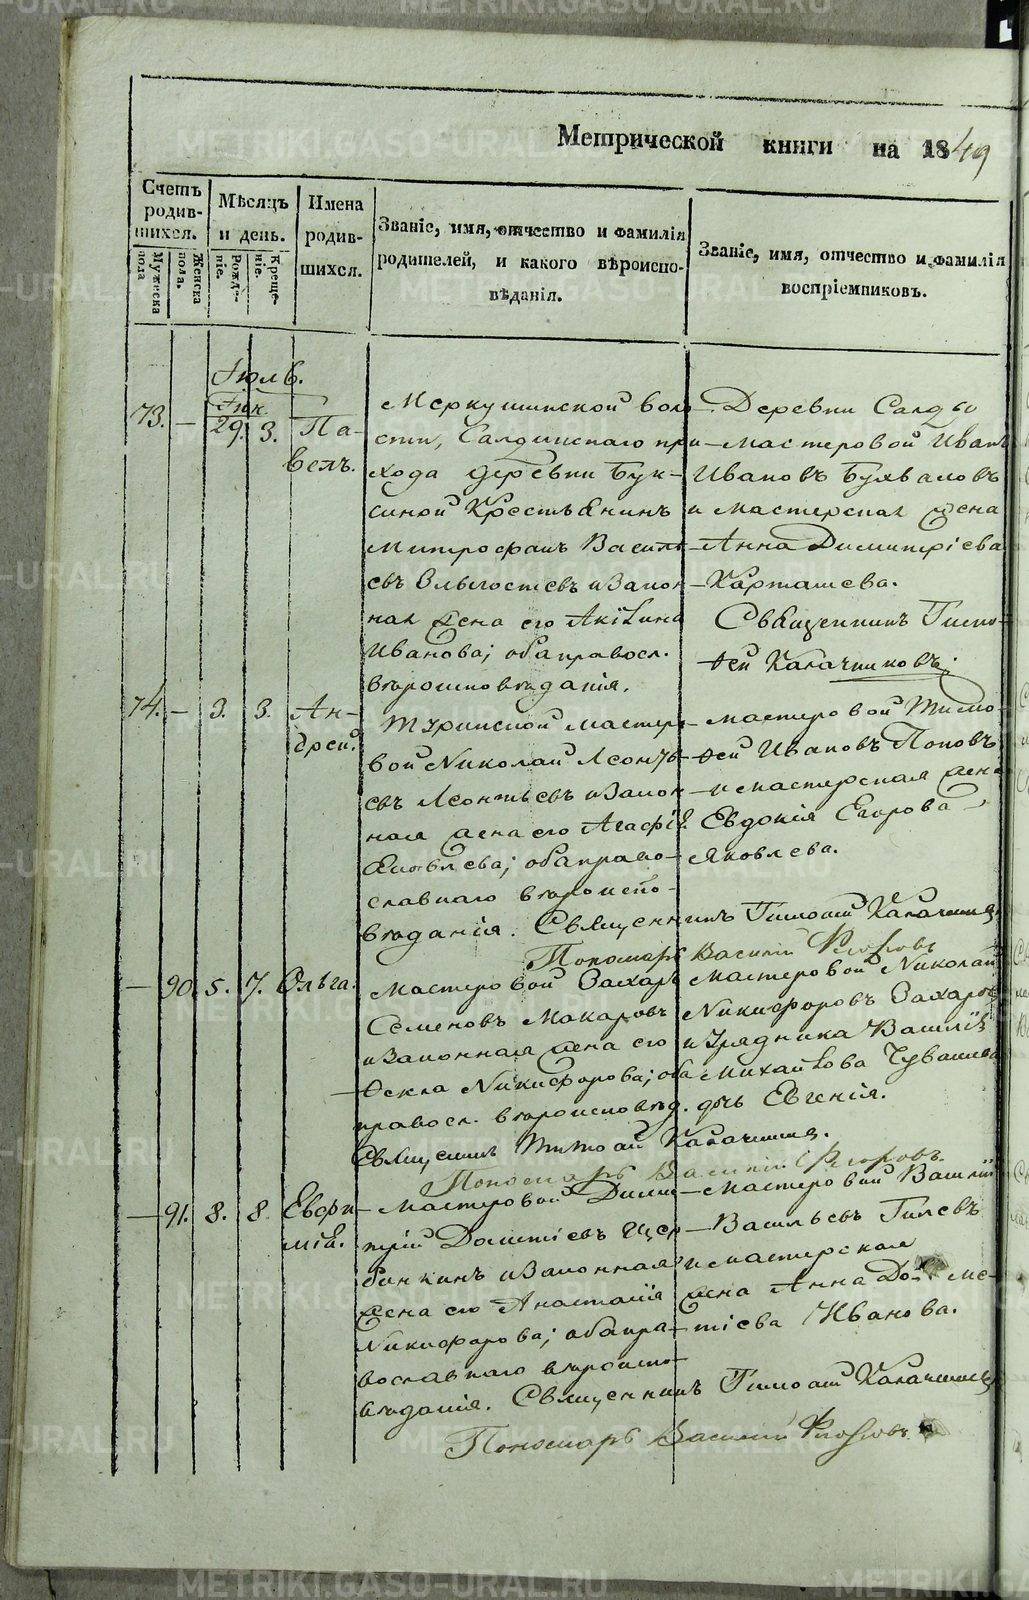 Метрической книги на 1849
Счетъ родив-шихся.
Мужеска пола
Женска пола.
Мѣсяцъ и день.
Рожде-ніе.
Креще-ніе.
Имена родив-шихся.
Званіе, имя, отчество и фамилія
родителей, и какого вѣроиспо-
вѣданія.
Званіе, имя, отчество и фамилія
воспріемниковъ.
Іюль.
73. — 29. 3. Па-
велъ.
Меркушинской воло
сти, Салдинскаго при
хода деревни Бук-
синой Крестьянинъ
Митрофанъ Василь
евъ и Закон
ная жена его Акилина
Иванова; оба правосл.
вѣроисповѣданія.
Деревни Салды
мастеровой Иванъ
Ивановъ
и мастерская жена
Анна Димитріева
Карташева.
Священникъ Тимо-
ѳей Калачниковъ.
74. — 3. 3. Ан-
дрей.
Туринской мастеро
вой Николай Леонть
евъ Леонтьевъ и Закон
ная жена его Агафія
Яковлева; оба право-
славнаго вѣроиспо-
вѣданія. Священникъ Тимоѳей Калачниковъ
мастеровой Тимо-
ѳей Ивановъ Поповъ
и мастерская жена
Евдокія Егорова
Яковлева.
Пономарь Василій
— 90. 5. 7. Ольга.
Мастеровой Захаръ
Семеновъ Макаровъ
и Законная жена его
Ѳекла Никифорова; оба
правосл. вѣроисповѣд.
Мастеровой Николай
Никифоровъ Захаровъ
и Урядника Василія
Михайлова Чувашева
дочь Евгенія.
Священникъ Тимоѳей Калачниковъ.
Пономарь Василій
— 91. 8. 8. Евфи
мія.
Мастеровой Дими
трій Дометіевъ Щер
бинкинъ и Законная
жена его Анастасія
Никифорова; оба пра-
вославнаго вѣроиспо
вѣданія. Священникъ Тимоѳей Калачниковъ
Мастеровой Василій
Васильевъ Гилевъ
и мастерская
жена Анна Доме-
тіева Иванова.
Пономарь Василій
METRIKI.GASO-URAL.RU